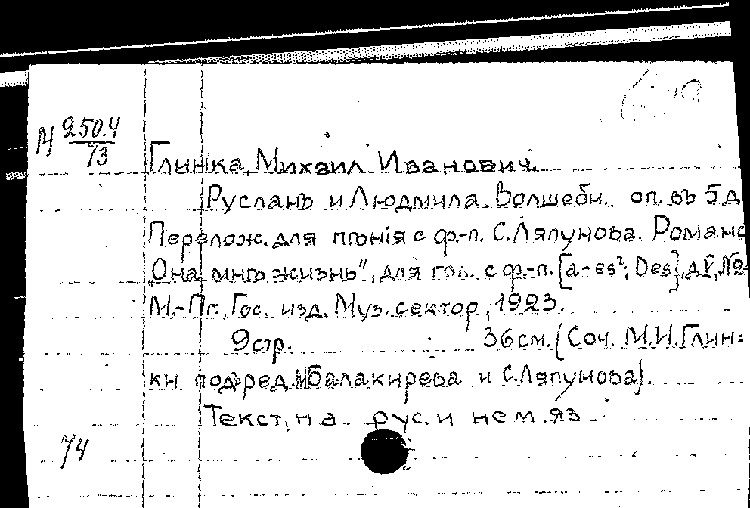 М 250.4
73
Глинка, Михаил Иванович.
Русланъ и Людмила. Волшебн. оп. въ 5 д
Перелож. для пѣнія с ф.-п. С. Ляпунова. Романс
„Она мнѣ жизнь", для гол. с ф.-п. [a-es²; Des], д. V, №
М.-Пг. Гос. изд. Муз. сектор, 1923.
9 стр. 36 см. (Соч. М.И. Глин=
ки под ред. М. Балакирева и С. Ляпунова).
Текст на рус. и нем. яз
74